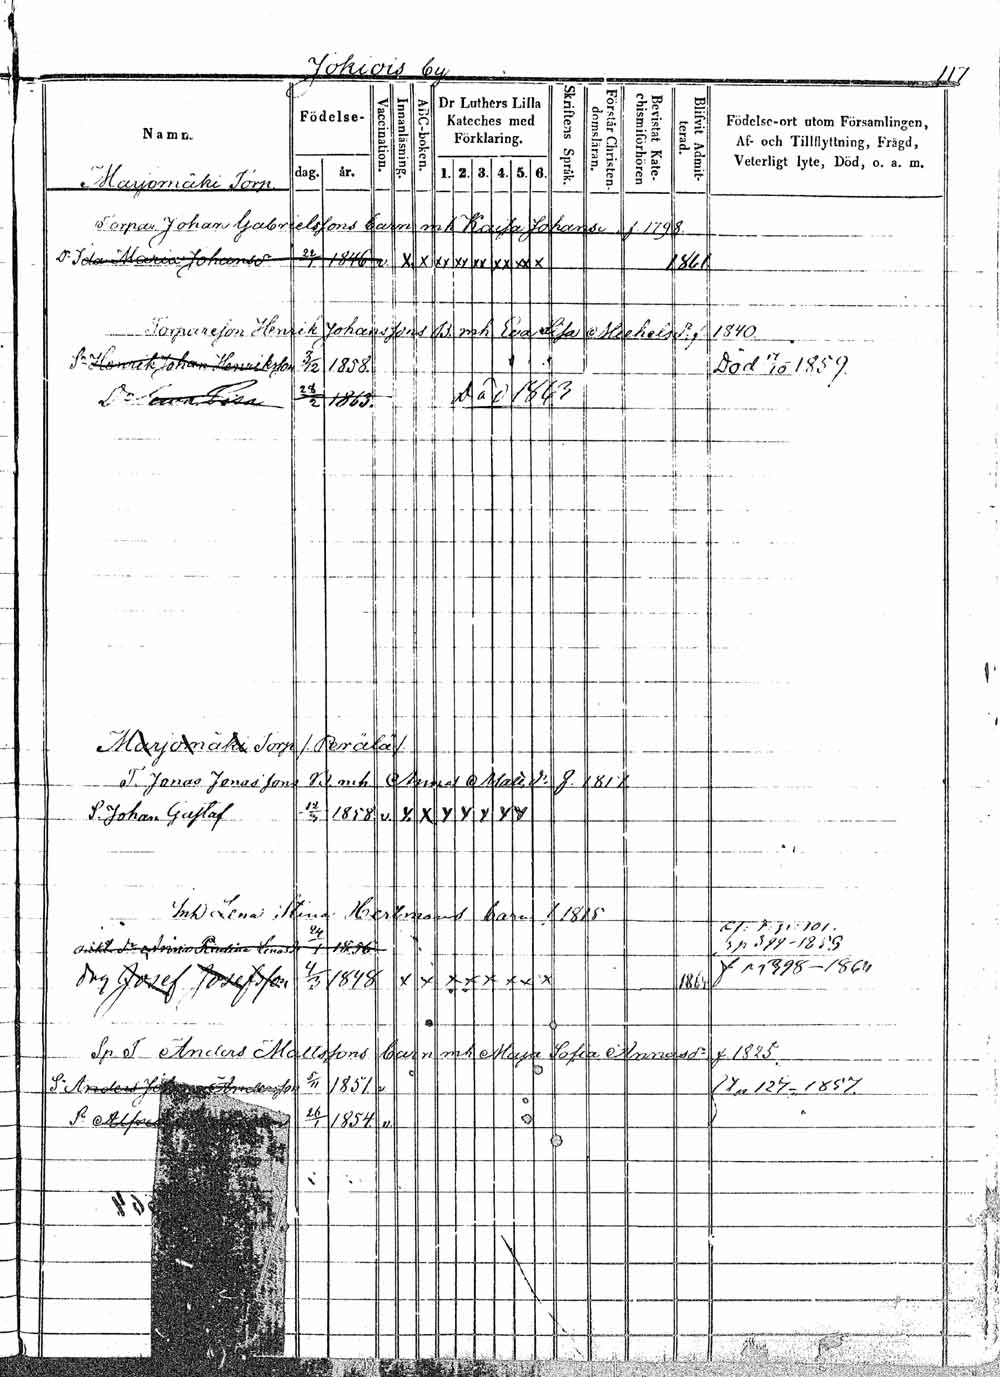 Jokiois by
117
Namn.
Födelse-
dag. år.
Vaccination.
Innanläsning.
ABC-boken.
Dr Luthers Lilla
Kateches med
Förklaring.
1. 2. 3. 4. 5. 6.
Skriftens Språk.
Förstår Christen-
domsläran.
Bevistat Kate-
chismiförhören
Blifvit Admit-
terad.
Födelse-ort utom Församlingen,
Af- och Tillflyttning, Frägd,
Veterligt lyte, Död, o. a. m.
Marjomäki Torp
Torpar. Johan Gabrielssons barn mh Kaisa Johansd. f 1798
Dr Ida Maria Johansdr 22/1 1846 v x x xx xx xx xx xx x 1861
Torparesson Henrik Johanssons B. mh Eva Lisa Michelsd. f 1840
Sn Henrik Johan Henriksson 3/2 1858. Död 17/10 1859.
Dr Lisa 28/2 1863. Död 1863
Marjomäki Torp / Perälä /
T. Jonas Jonassons B. mh Anna Matsdr f. 1817
S. Johan Gustaf 12/3 1858 v. x x x x x x x
Inh Lena Stina Hertmans barn f 1815
24/1 1856
Drg Josef Josefsson 4/3 1848 x x x x x x x x 1864
1859
398-1864
Sp T Anders Mattssons barn mh Maja Sofia Annasdr f 1825.
Sn Anders Johan Andersson 5/11 1851 v n 127-1857.
Sn Alfred 26/1 1854 v